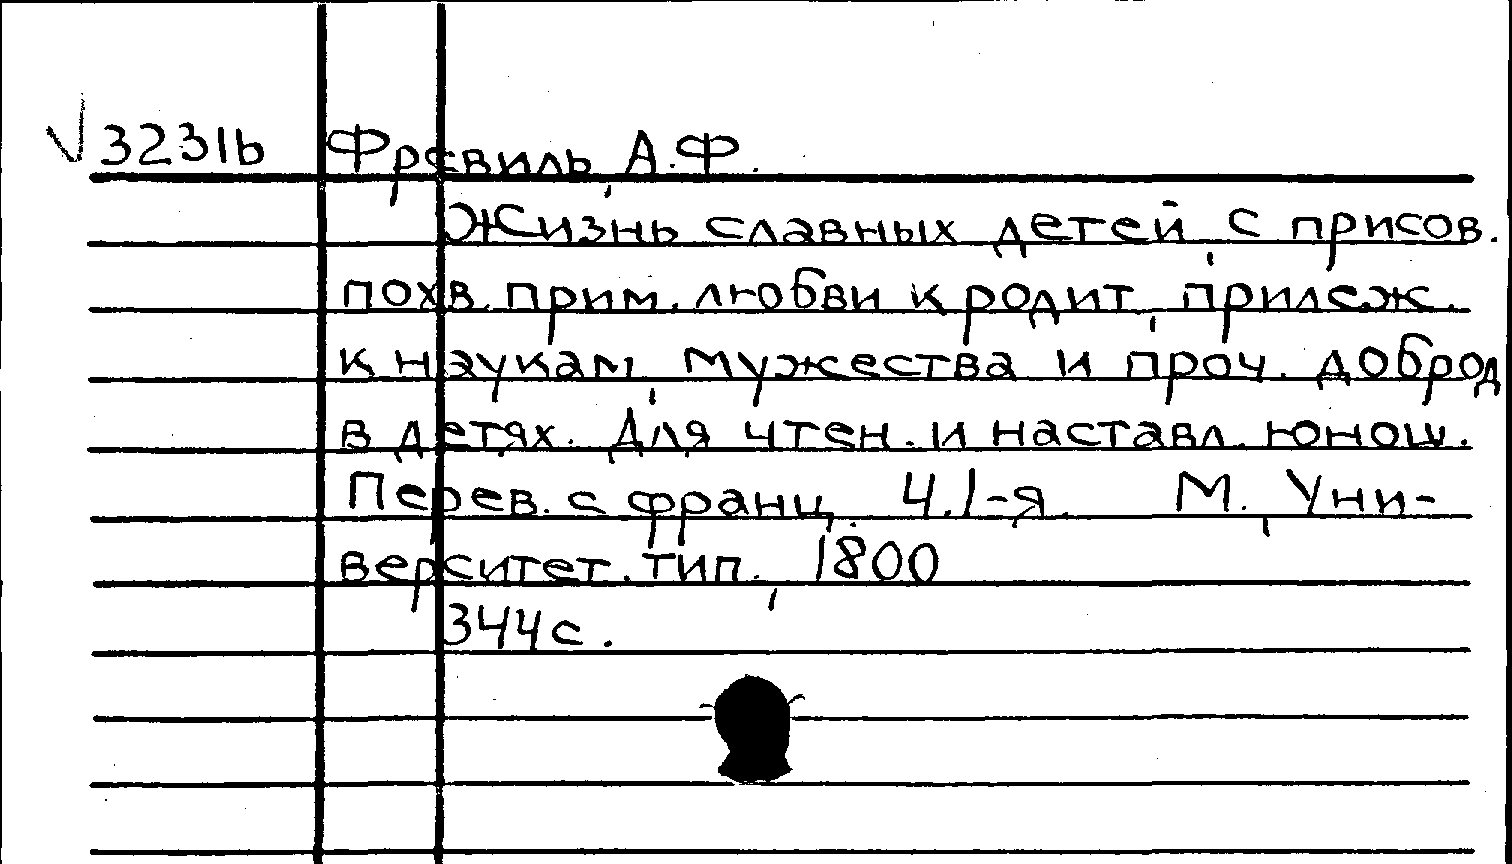 √ 3231b Фревиль, А.Ф.
Жизнь славных детей, с присов.
похв. прим. любви к родит., прилеж.
к наукам, мужества и проч. доброд
в детях. Для чтен. и наставл. юнош.
Перев. с франц. Ч.1-я. М., Уни-
верситет. тип., 1800
344с.